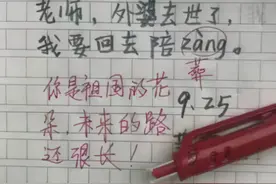 老师，外婆去世了，
我要回去陪zàng。
葬
你是祖国的花
朵，未来的路
还很长！
9.25